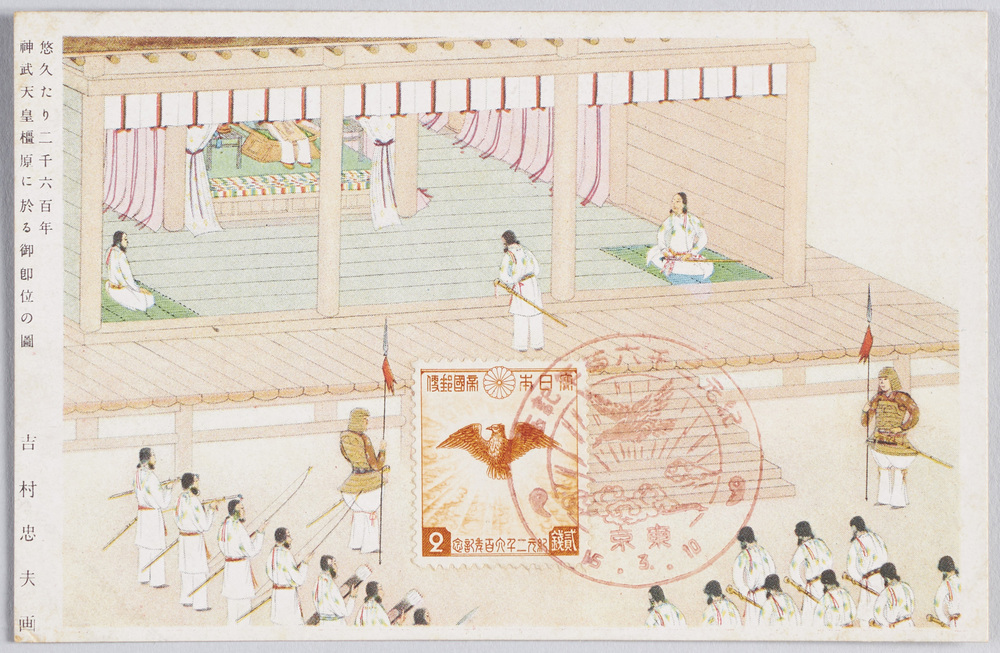 悠久たり二千六百年
神武天皇橿原に於る御卽位の圖
吉村忠夫画
便郵國帝本日大
2
念記年百六千二元紀
貳錢
東京
15.3.10